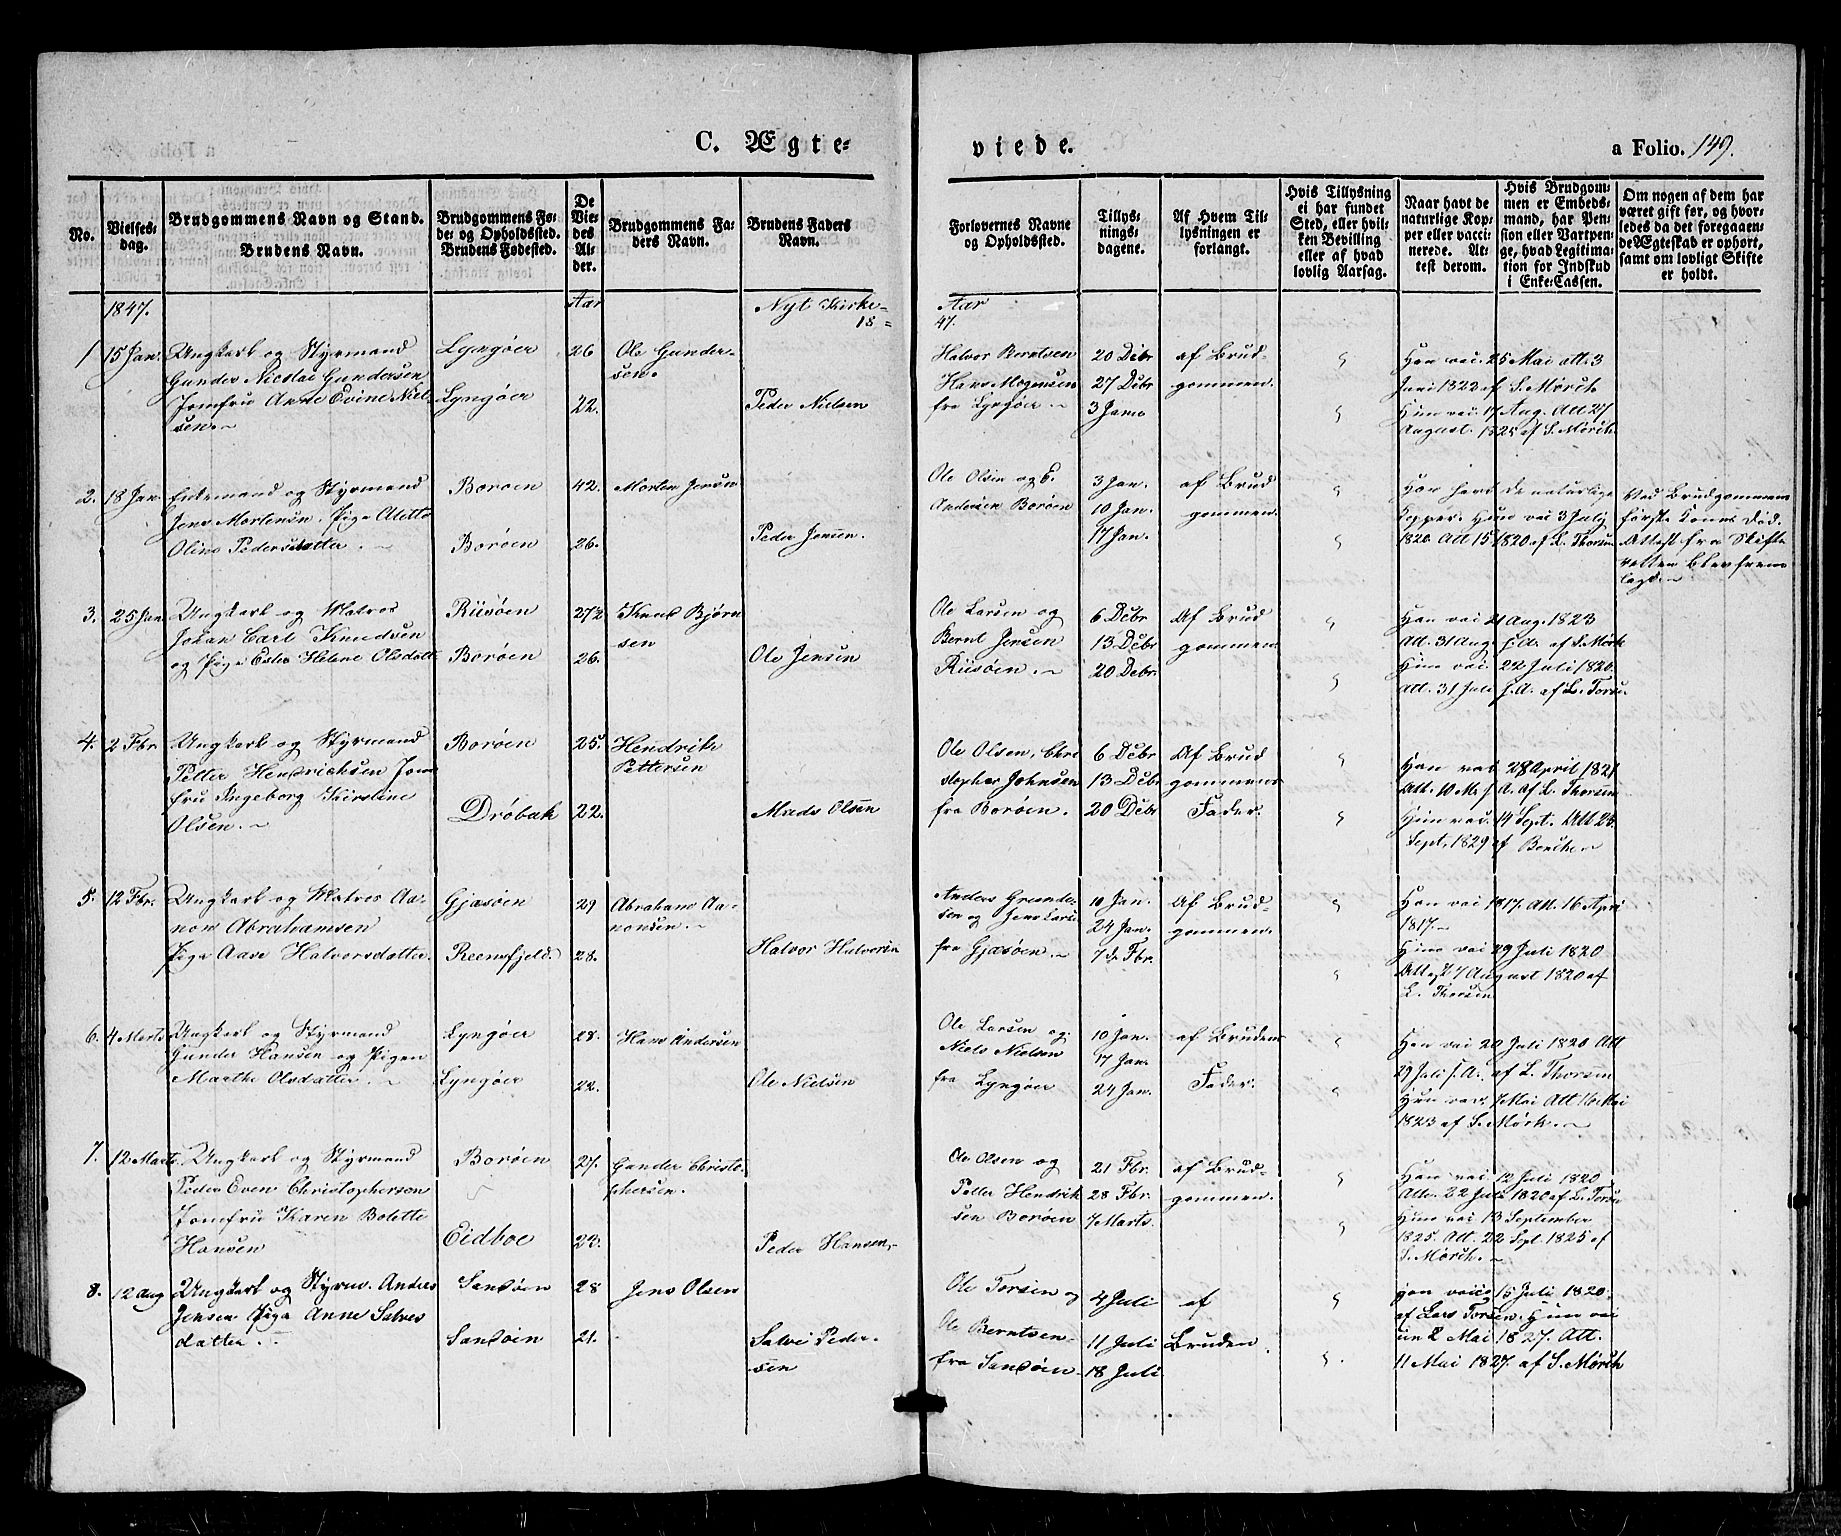 C. Ægte-
viede.
a Folio. 149.
No.
Vielses-
dag.
Brudgommens Navn og Stand.
Brudens Navn.
Brudgommens Fø-
de- og Opholdssted.
Brudens Fødested.
De
Vie-
des
Al-
der.
Brudgommens Fa-
ders Navn.
Brudens Faders
Navn.
Forlovernes Navne
og Opholdssted.
Tillys-
nings-
dagene.
Af Hvem Til-
lysningen er
forlangt.
Hvis Tillysning
ei har fundet
Sted, eller hvil-
ken Bevilling
eller af hvad
lovlig Aarsag.
Naar havt de
naturlige Kop-
per eller vacci-
nerede. At-
test derom.
Hvis Brudgom-
men er Embeds-
mand, har Pen-
sion eller Vartpen-
ge, hvad Legitima-
tion for Indskud
i Enke-Cassen.
Om nogen af dem har
været gift før, og hvor-
ledes da det foregaaen-
de Ægteskab er ophørt,
samt om lovligt Skifte
er holdt.
1847.
Aar
Nyt Kirke-
18 =
Aar
47.
1
15 Jan.
Ungkarl og Styrmand
Gunder Nicolai Gundersen
Jomfru Anne Evine Niel-
sen.
Lyngøer
Lyngøer
26
22.
Ole Gunder-
sen.
Peder Nielsen
Halvor Berntsen
Hans Mogensen
fra Lyngøer
20 Debr
27 Debr
3 Janr.
af Brud-
gommen.
Han vac. 25 Mai att. 3
Juni 1822 af S. Mørch
Hun vac. 17 Aug. Att 27
August. 1825 af S. Mørch.
2.
18 Jan.
Enkemand og Styrmand
Jens Mortensen. Pige Alette
Oline Pedersdatter.
Borøen
Borøen
42.
26.
Morten Jensen
Peder Jensen.
Ole Olsen og
Andersen Borøen
3 Jan.
10 Jan.
17 Jan.
af Brud
gommen.
Han havt de naturlige
Kopper. Hun vac 3 July
1820. Att 15 1820 af L. Thorsen
Ved Brudgommens
første Kones Død.
Attest fra Skifte
retten blev frem
lagt.
3.
25 Jan
Ungkarl og Matros
Johan Carl Knudsen
og Pige Ester Helene Olsdatt.
Riisøen
Borøen
27½
26.
Knud Bjørn
sen
Ole Jensen
Ole Larsen og
Bernt Jensen
Riisøen.
6 Debr
13 Debr
20 Debr.
Af Brud
gommen
Han vac. 21 Aug. 1823
Att. 31 Aug. s. A. af S. Mørk
Hun vac. 22 Juli 1820.
Att. 31 Juli s. A. af L. Torse.
4.
2 Fbr
Ungkarl og Styrmand
Petter Hendrichsen Jom
fru Ingeborg Kirstine
Olsen.
Borøen
Drøbak
25.
22.
Hendrik
Pettersen
Mads Olsen
Ole Olsen, Chri
stopher Johnsen
fra Borøen.
6 Debr
13 Debr
20 Debr
Af Brud
gommens
Fader.
Han vac 28 April 1821
Att. 10 M. s. A. af L. Thorsen
Hun vac. 14 Sept. Att 25.
Sept. 1829 af
5.
12 Fbr.
Ungkarl og Matros Aa-
non Abrahamsen
Pige Aase Halvorsdatter.
Gjæsøen
Reensfjeld.
29
28.
Abraham Aa-
nonsen.
Halvor Halvorsen
Anders Gunder-
sen og Jens Larse
fra Gjæsøen.
10 Jan.
24 Jan.
7de Fbr.
Af Brud-
gommen.
Han vac 1817. Att. 16 Apri
1817.
Hun vac 29 Juli 1820
Attest 7 August 1820 af
L. Thorsen
6.
4 Marts
Ungkarl og Styrmand
Gunder Hansen og Pigen
Marthe Olsdatter.
Lyngøer
Lyngøer
28.
22.
Hans Andersen
Ole Nielsen
Ole Larsen og
Niels Nielsen
fra Lyngøer
10 Jan.
17 Jan.
24 Jan.
af Brudens
Fader.
Han vac 20 Juli 1820 Att
29 Juli s. A. af L. Thorsen
Hun vac. 7 Mai Att 16 Mai
1823 af S. Mørk.
7.
12 Marts
Ungkarl og Styrmand
Peder Even Christophersen
Jomfru Karen Bolette
Hansen
Borøen
Eidboe
27.
23.
Gunder Christo-
phersen.
Peder Hansen
Ole Olsen og
Petter Hendrik
sen Borøen
21 Fbr.
28 Fbr.
7 Marts.
af Brud-
gommen.
Han vac. 12 Juli 1820
Att. 22 Juli 1820 af L. Torse
Hun vac 13 September
1825. Att. 22 Sept. 1825 af
S. Mørch.
8.
12 Aug
Ungkarl og Styrm. Anders
Jensen Pige Anne Salves
datter.
Sandøen
Sandøen
28
21.
Jens Olsen
Salve Peder-
sen
Ole Torsen og
Ole Berntsen
fra Sandøen
4 Juli
11 Juli
18 Juli
af
Bruden.
Han vacc 15 Juli 1820.
af Lars Torsen. Hun vac
2 Mai 1827. Att.
11 Mai 1827. af S. Mørch